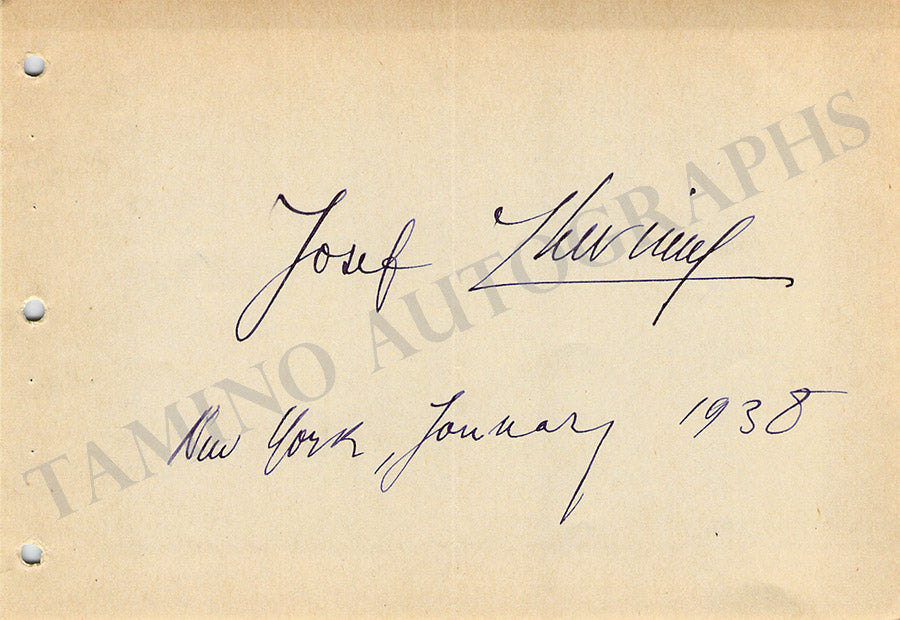 Josef Lhevinne
New York, January 1938
TAMINO AUTOGRAPHS